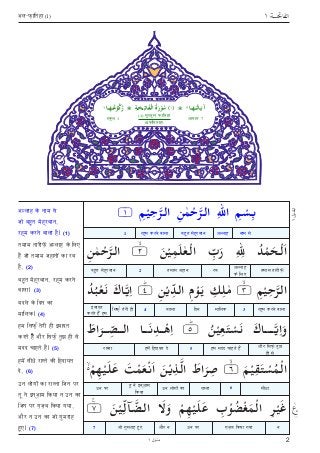 अल-फ़ातिहा (1)
الفاتحة ١
بِسْمِ اللهِ الرَّحْمٰنِ الرَّحِيْمِ ١
नाम से अल्लाह बहुत मेहरबान रहम करने वाला 1
اَلْحَمْدُ لِلّٰهِ رَبِّ الْعٰلَمِيْنَ ٢ الرَّحْمٰنِ
तमाम तारीफ़ें अल्लाह के लिए रब तमाम जहान 2 बहुत मेहरबान
الرَّحِيْمِ ٣ مٰلِكِ يَوْمِ الدِّيْنِ ٤ اِيَّاكَ نَعْبُدُ
रहम करने वाला 3 मालिक दिन बदला 4 सिर्फ़ तेरी ही हम इबादत करते हैं
وَاِيَّاكَ نَسْتَعِيْنُ ٥ اِهْدِنَا الصِّرَاطَ
और सिर्फ़ तुझ ही से हम मदद चाहते हैं 5 हमें हिदायत दे रास्ता
الْمُسْتَقِيْمَ ٦ صِرَاطَ الَّذِيْنَ اَنْعَمْتَ عَلَيْهِمْ
सीधा 6 रास्ता उन लोगों का तू ने इनआम किया उन पर
غَيْرِ الْمَغْضُوْبِ عَلَيْهِمْ وَلَا الضَّآلِّيْنَ ٧
न ग़ज़ब किया गया उन पर और न जो गुमराह हुए 7
अल्लाह के नाम से
जो बहुत मेहरबान,
रहम करने वाला है। (1)
तमाम तारीफ़ें अल्लाह के लिए
हैं जो तमाम जहानों का रब
है, (2)
बहुत मेहरबान, रहम करने
वाला। (3)
बदले के दिन का
मालिक। (4)
हम सिर्फ़ तेरी ही इबादत
करते हैं और सिर्फ़ तुझ ही से
मदद चाहते हैं। (5)
हमें सीधे रास्ते की हिदायत
दे, (6)
उन लोगों का रास्ता जिन पर
तू ने इनआम किया न उन का
जिन पर ग़ज़ब किया गया,
और न उन का जो गुमराह
हुए। (7)
منزل ١
2